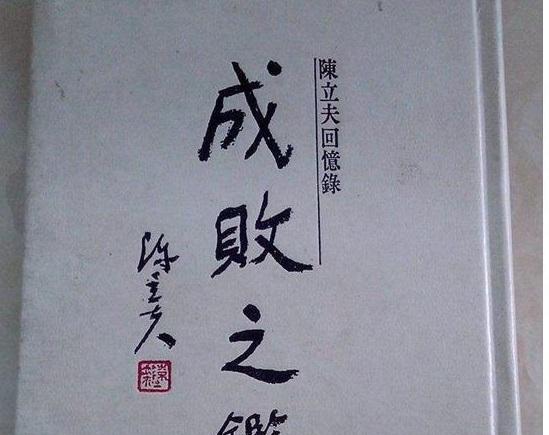 陳立夫回憶錄
成敗之鑑
陳立夫